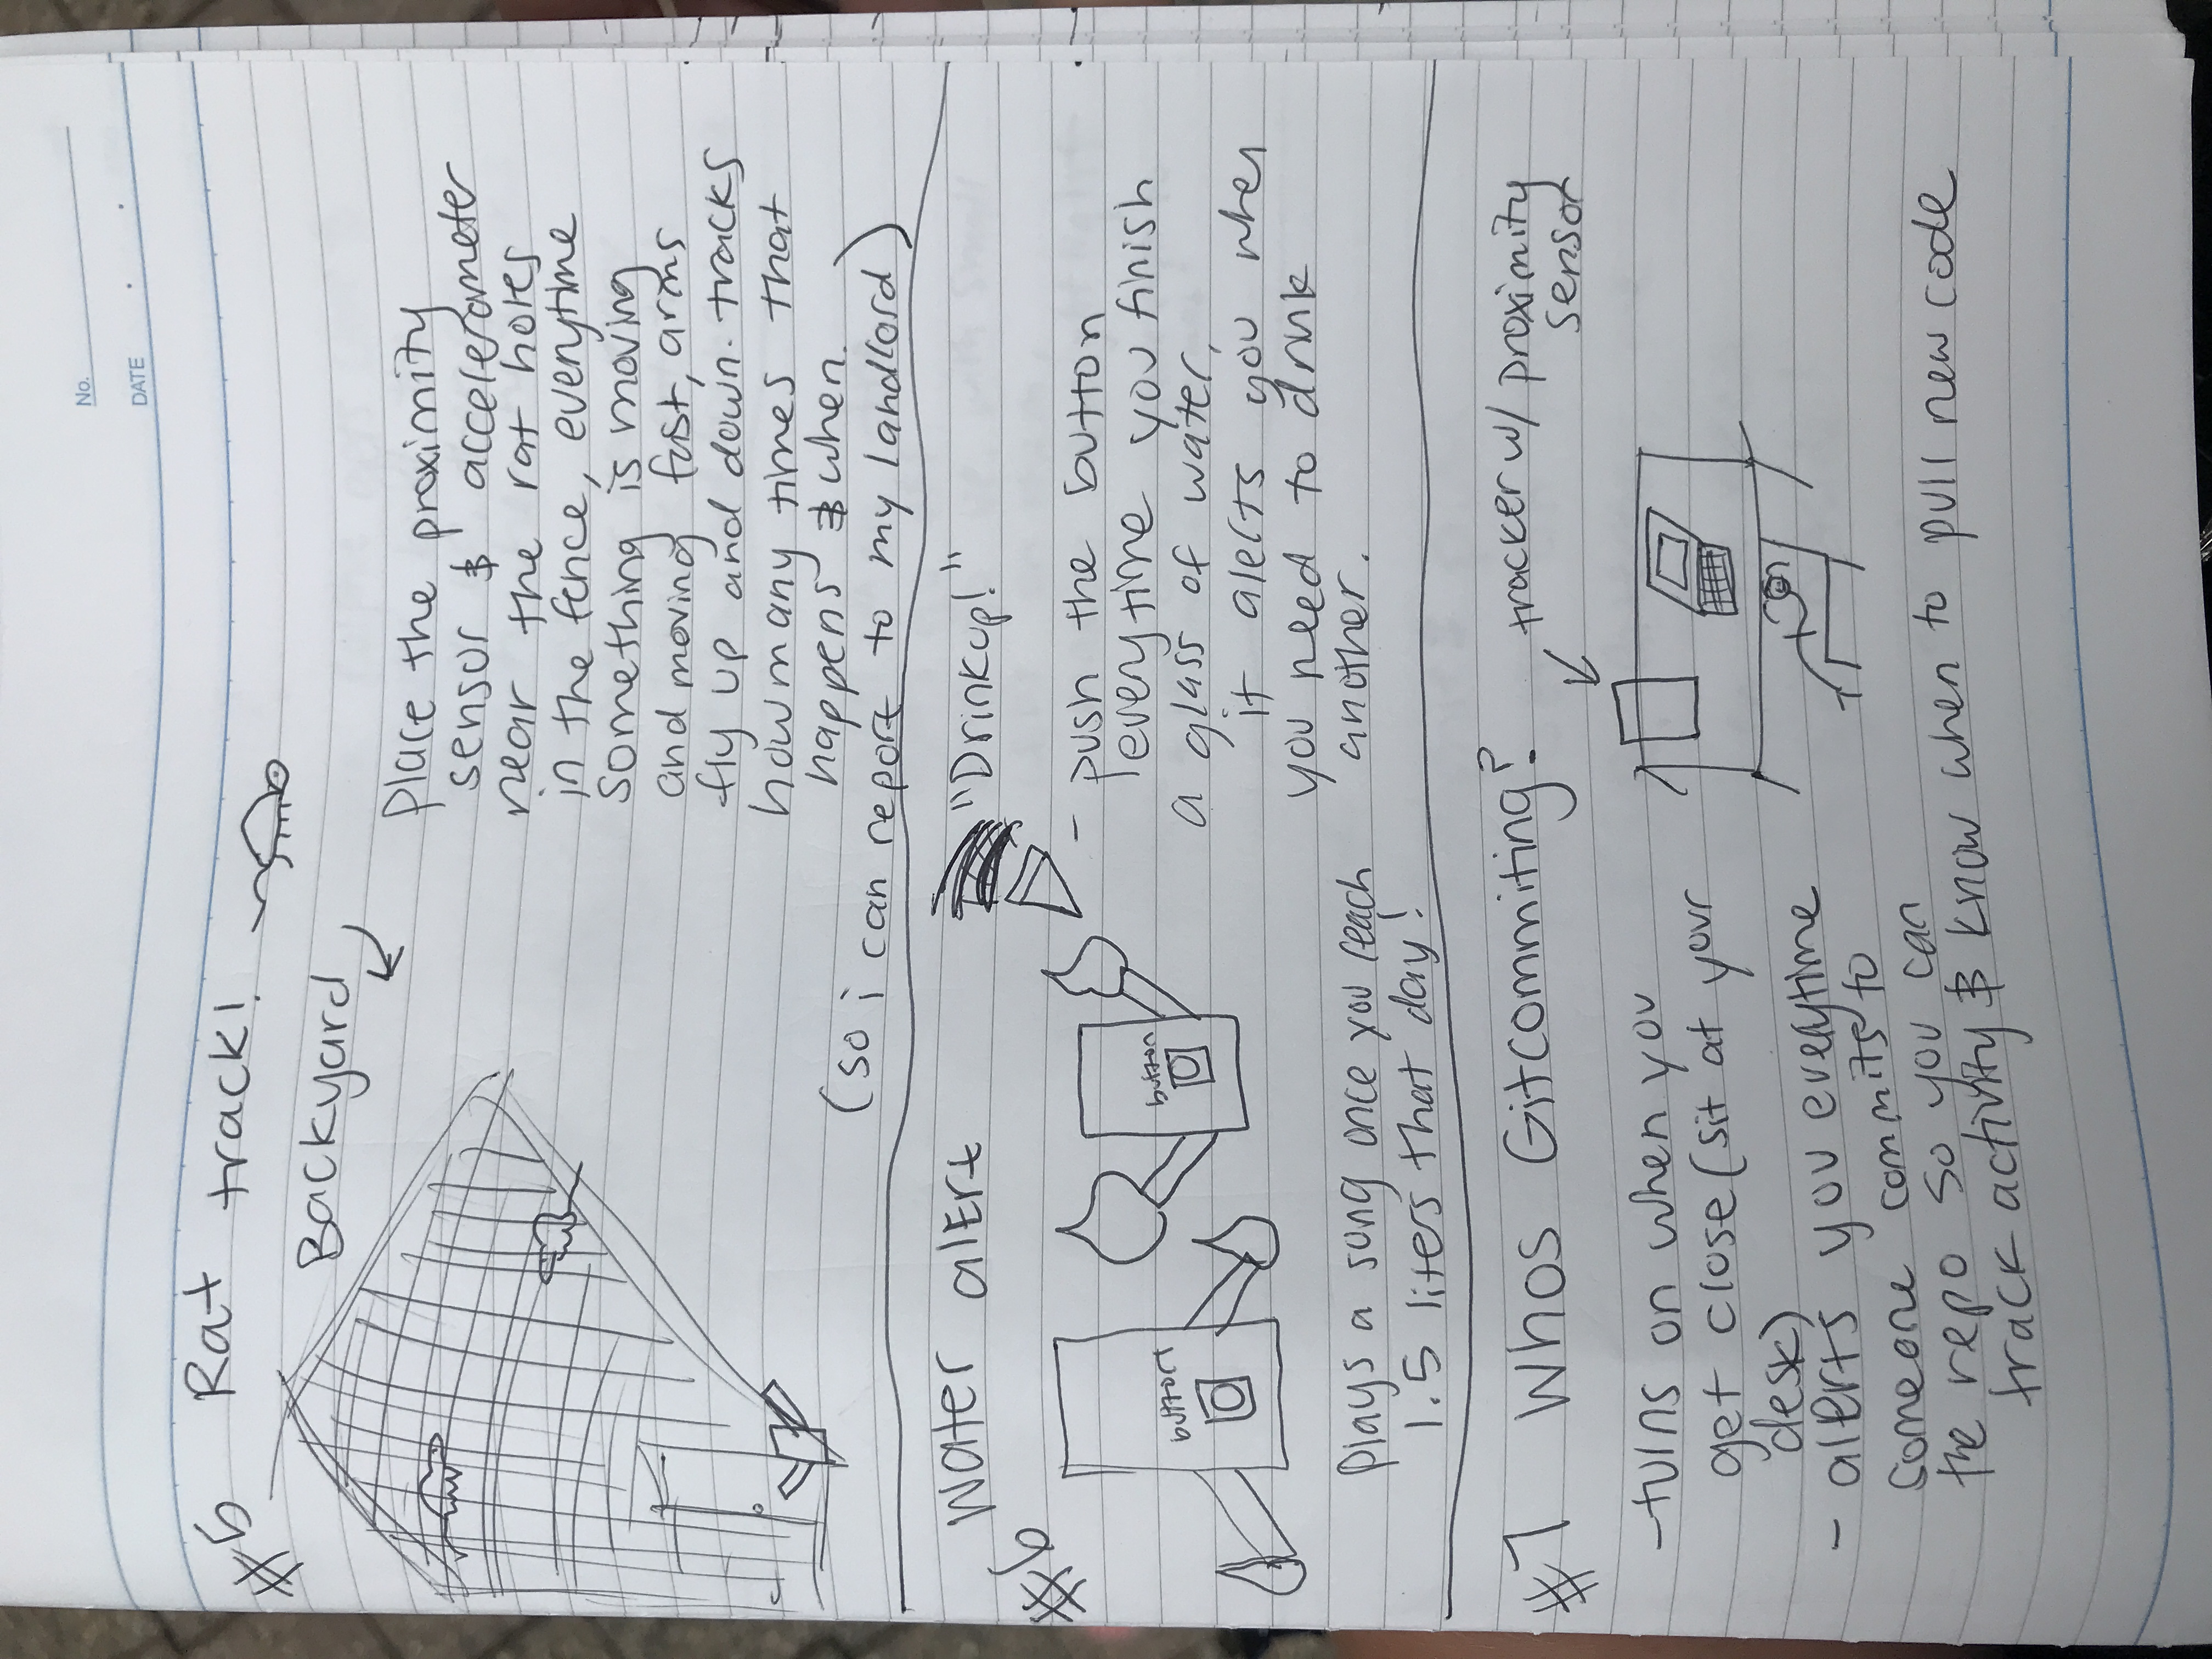 No.
DATE
#5 Rat track!
Backyard
Place the proximity
sensor & accelerometer
near the rat holes
in the fence, everytime
something is moving
and moving fast, arms
fly up and down. tracks
how many times that
happens & when.
(so i can report to my landlord)
Water alErt
#6
"Drinkup!"
button
button
- push the button
everytime you finish
a glass of water,
it alerts you when
you need to drink
another.
Plays a song once you reach
1.5 liters that day!
#7 Whos Gitcommiting?
tracker w/ proximity
sensor
- turns on when you
get close (sit at your
desk)
- alerts you everytime
someone commits to
the repo so you can
track activity & know when to pull new code